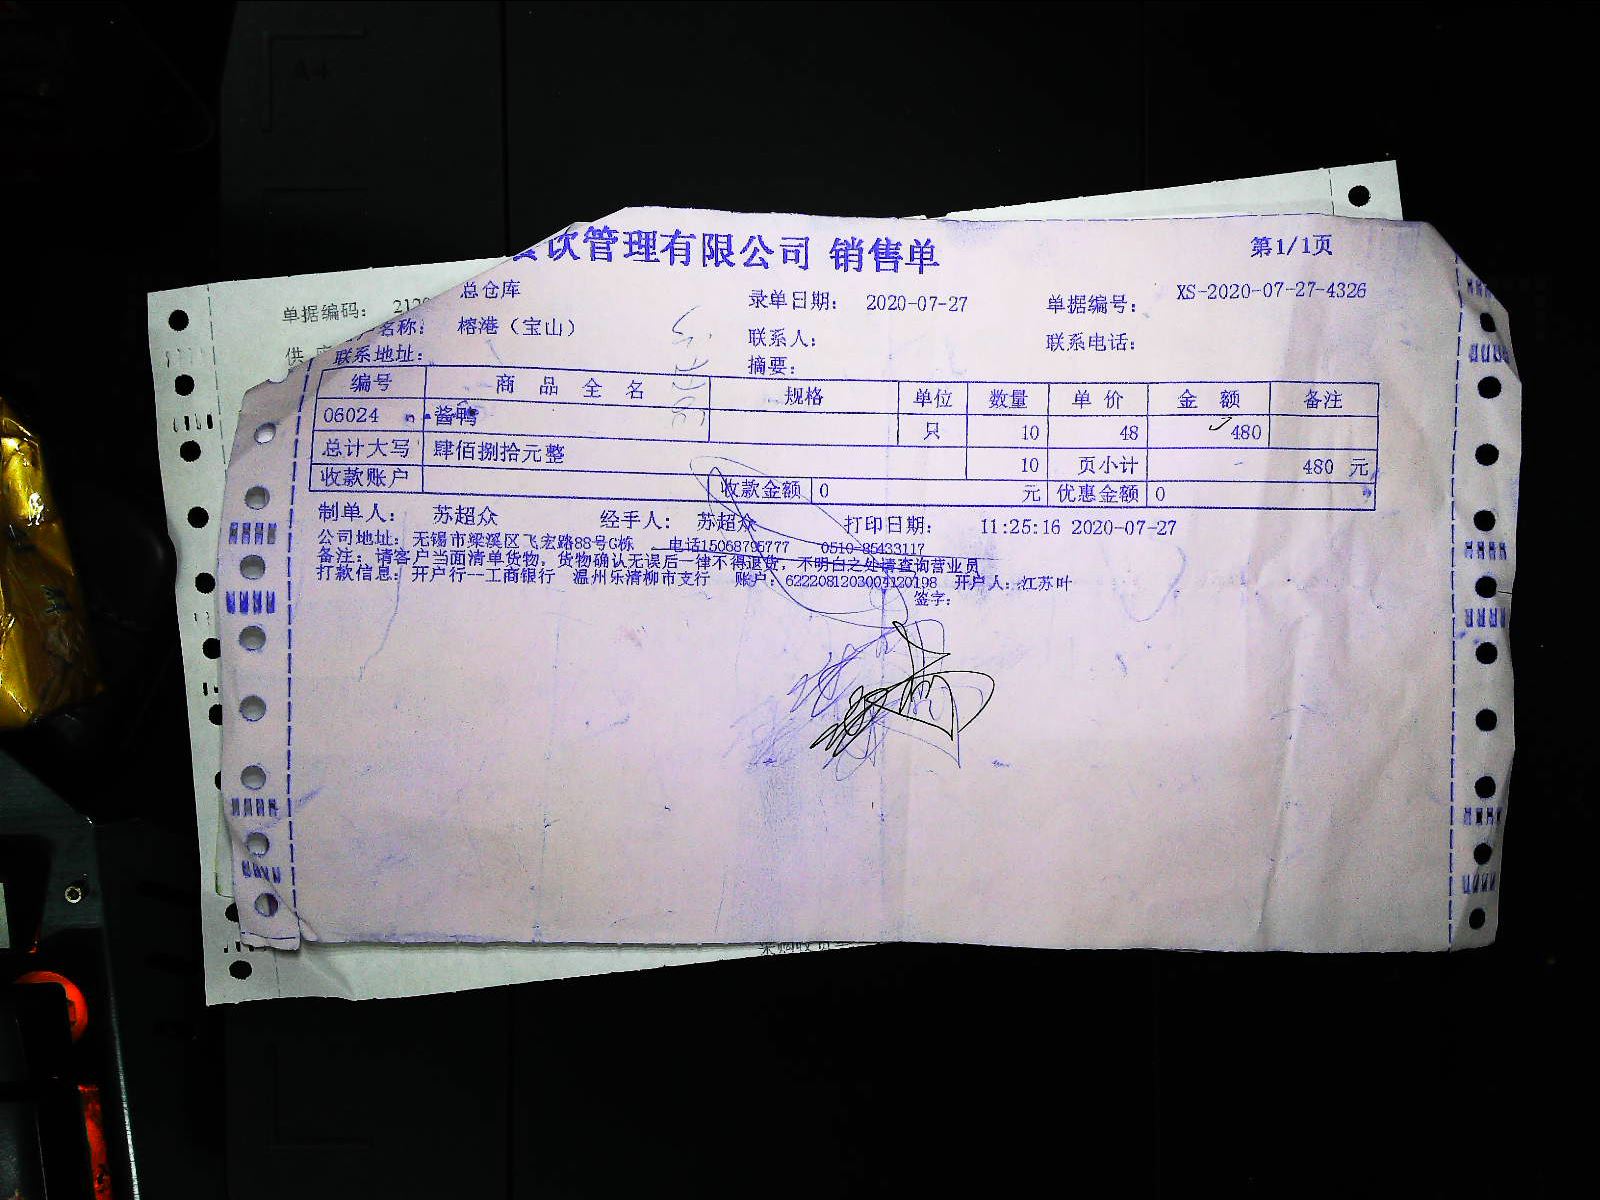 饮管理有限公司 销售单 第1/1页
单据编码： 总仓库 录单日期： 2020-07-27 单据编号： XS-2020-07-27-4326
名称： 榕港（宝山） 联系人： 联系电话：
供
联系地址： 摘要：
编号 商品全名 规格 单位 数量 单价 金额 备注
06024 酱鸭 只 10 48 480
总计大写 肆佰捌拾元整 10 页小计 480 元
收款账户 收款金额 0 元 优惠金额 0
制单人： 苏超众 经手人： 苏超众 打印日期： 11:25:16 2020-07-27
公司地址：无锡市梁溪区飞宏路88号G栋 电话15068795777 0510-85433117
备注：请客户当面清单货物，货物确认无误后一律不得退货，不明白之处请查询营业员
打款信息：开户行--工商银行 温州乐清柳市支行 账户：6222081203004120198 开户人：江苏叶
签字：